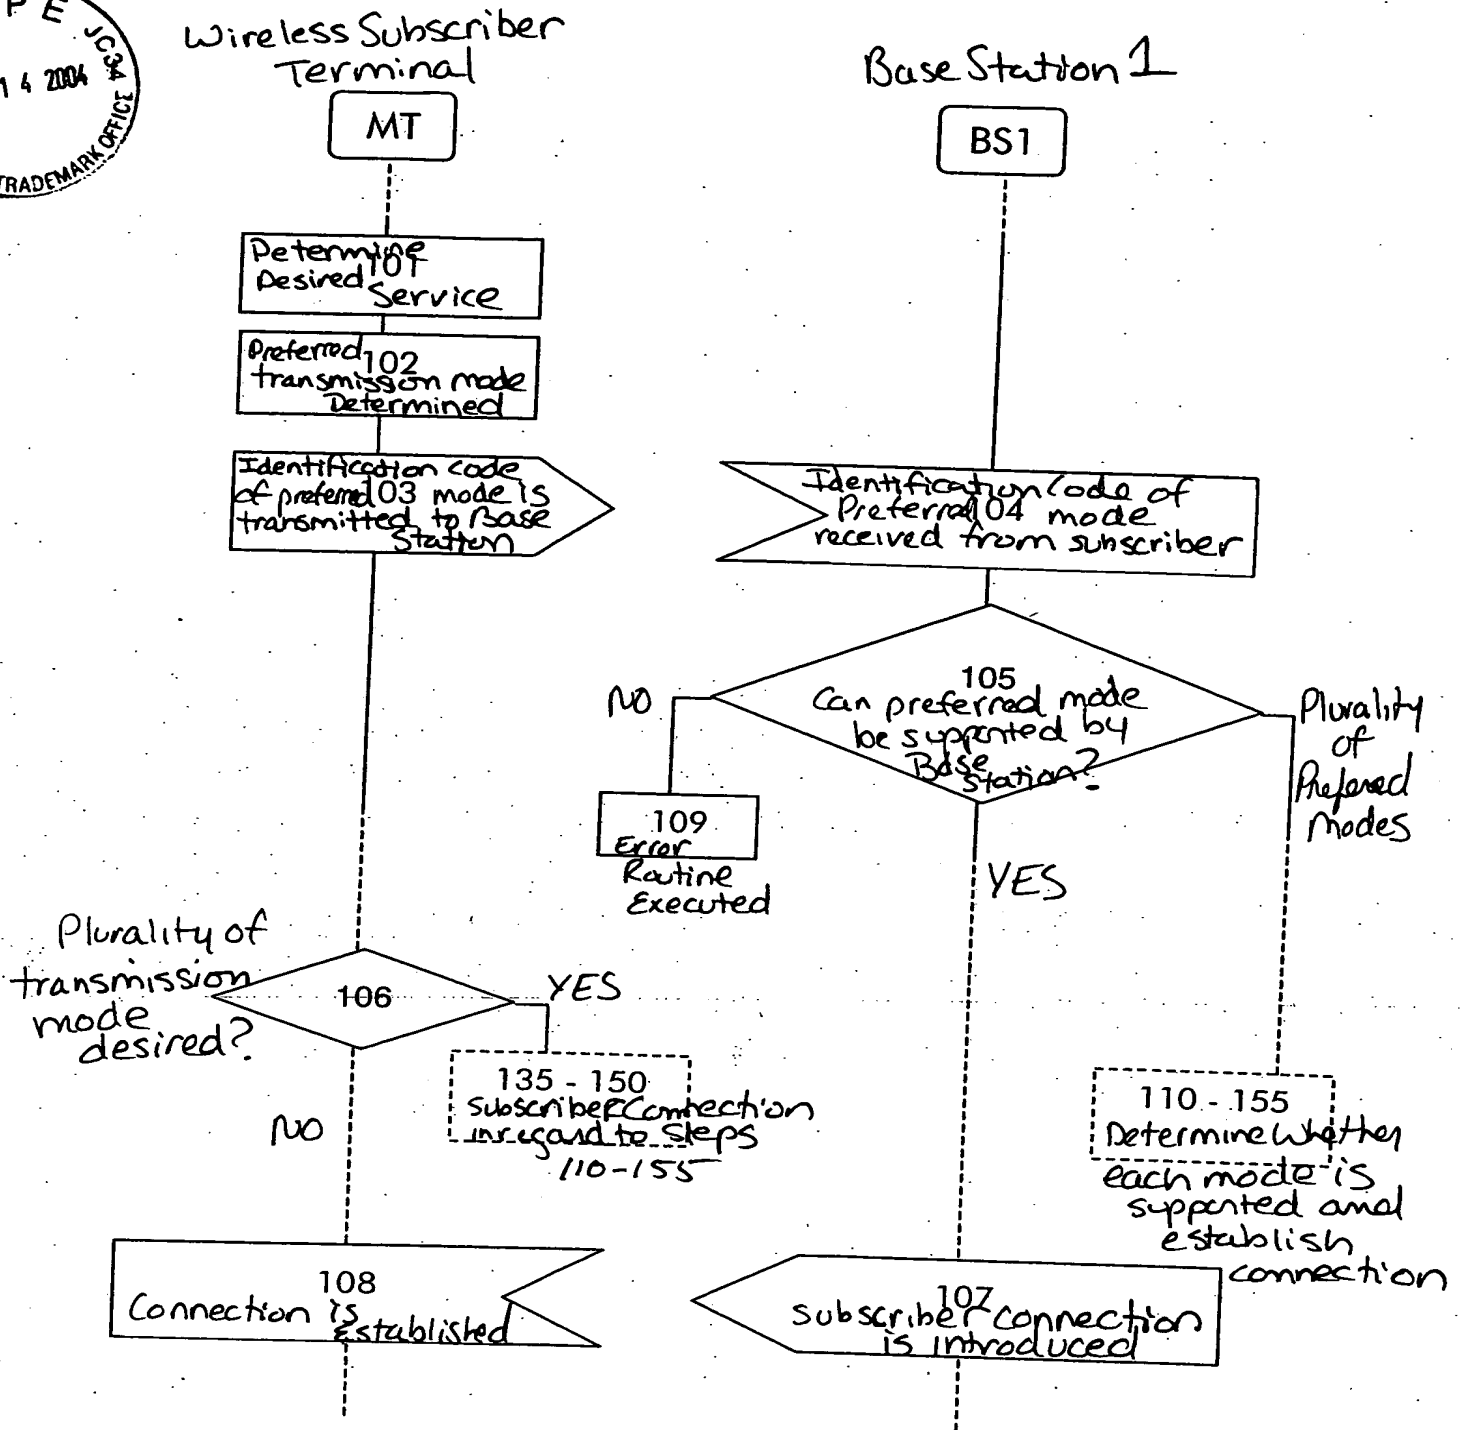 P E JC34
1 4 2004
TRADEMARK OFFICE
Wireless Subscriber
Terminal
MT
Base Station 1
BS1
Determine
101
Desired
Service
Preferred
102
transmission mode
Determined
Identification code
of preferred 103 mode is
transmitted to Base
Station
Identification Code of
Preferred 104 mode
received from subscriber
105
Can preferred mode
be supported by
Base
Station?
NO
109
Error
Routine
Executed
YES
Plurality
of
Prefered
Modes
Plurality of
transmission
mode
desired?
106
YES
135 - 150
Subscriber Connection
in regard to steps
110-155
NO
110 - 155
Determine whether
each mode is
supported and
establish
connection
108
Connection is
Established
107
Subscriber connection
is introduced